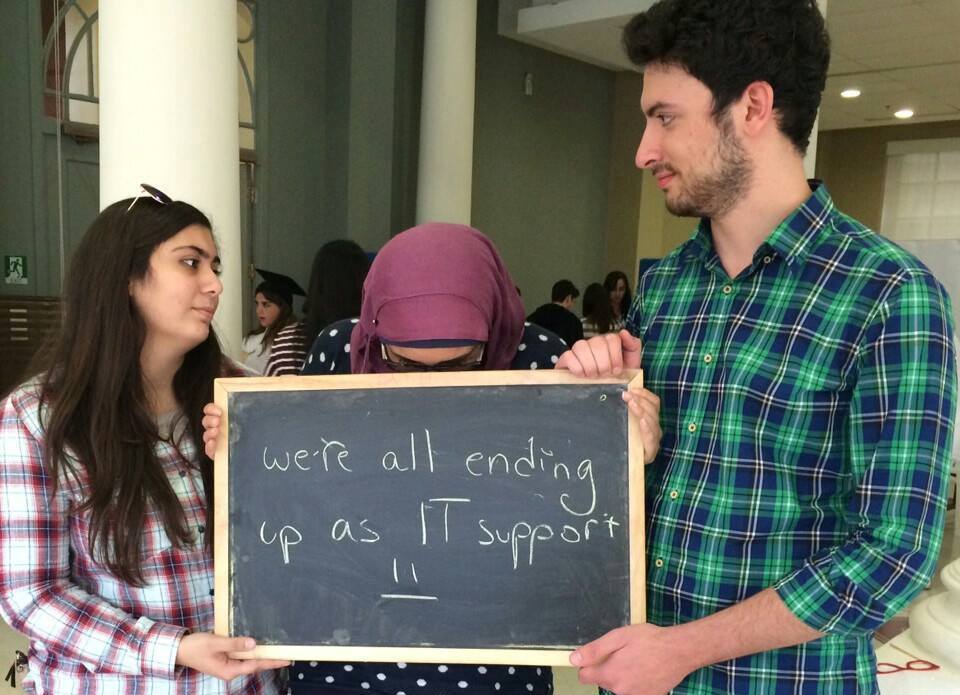 we're all ending
up as IT support